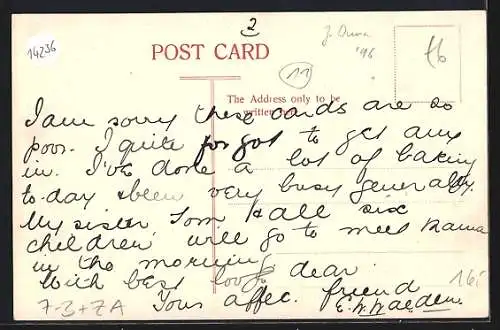 2
14236
POST CARD
J. Dunn
'96
f6
11
The Address only to be
written
I am sorry these cards are so
poor. I quite forgot to get any
in. I've done a lot of baking
to-day & been very busy generally.
My sister Tom & all six
children will go to meet Mama
in the morning
With best love dear
Yours affec. friend
E. W.
7-3+ZA